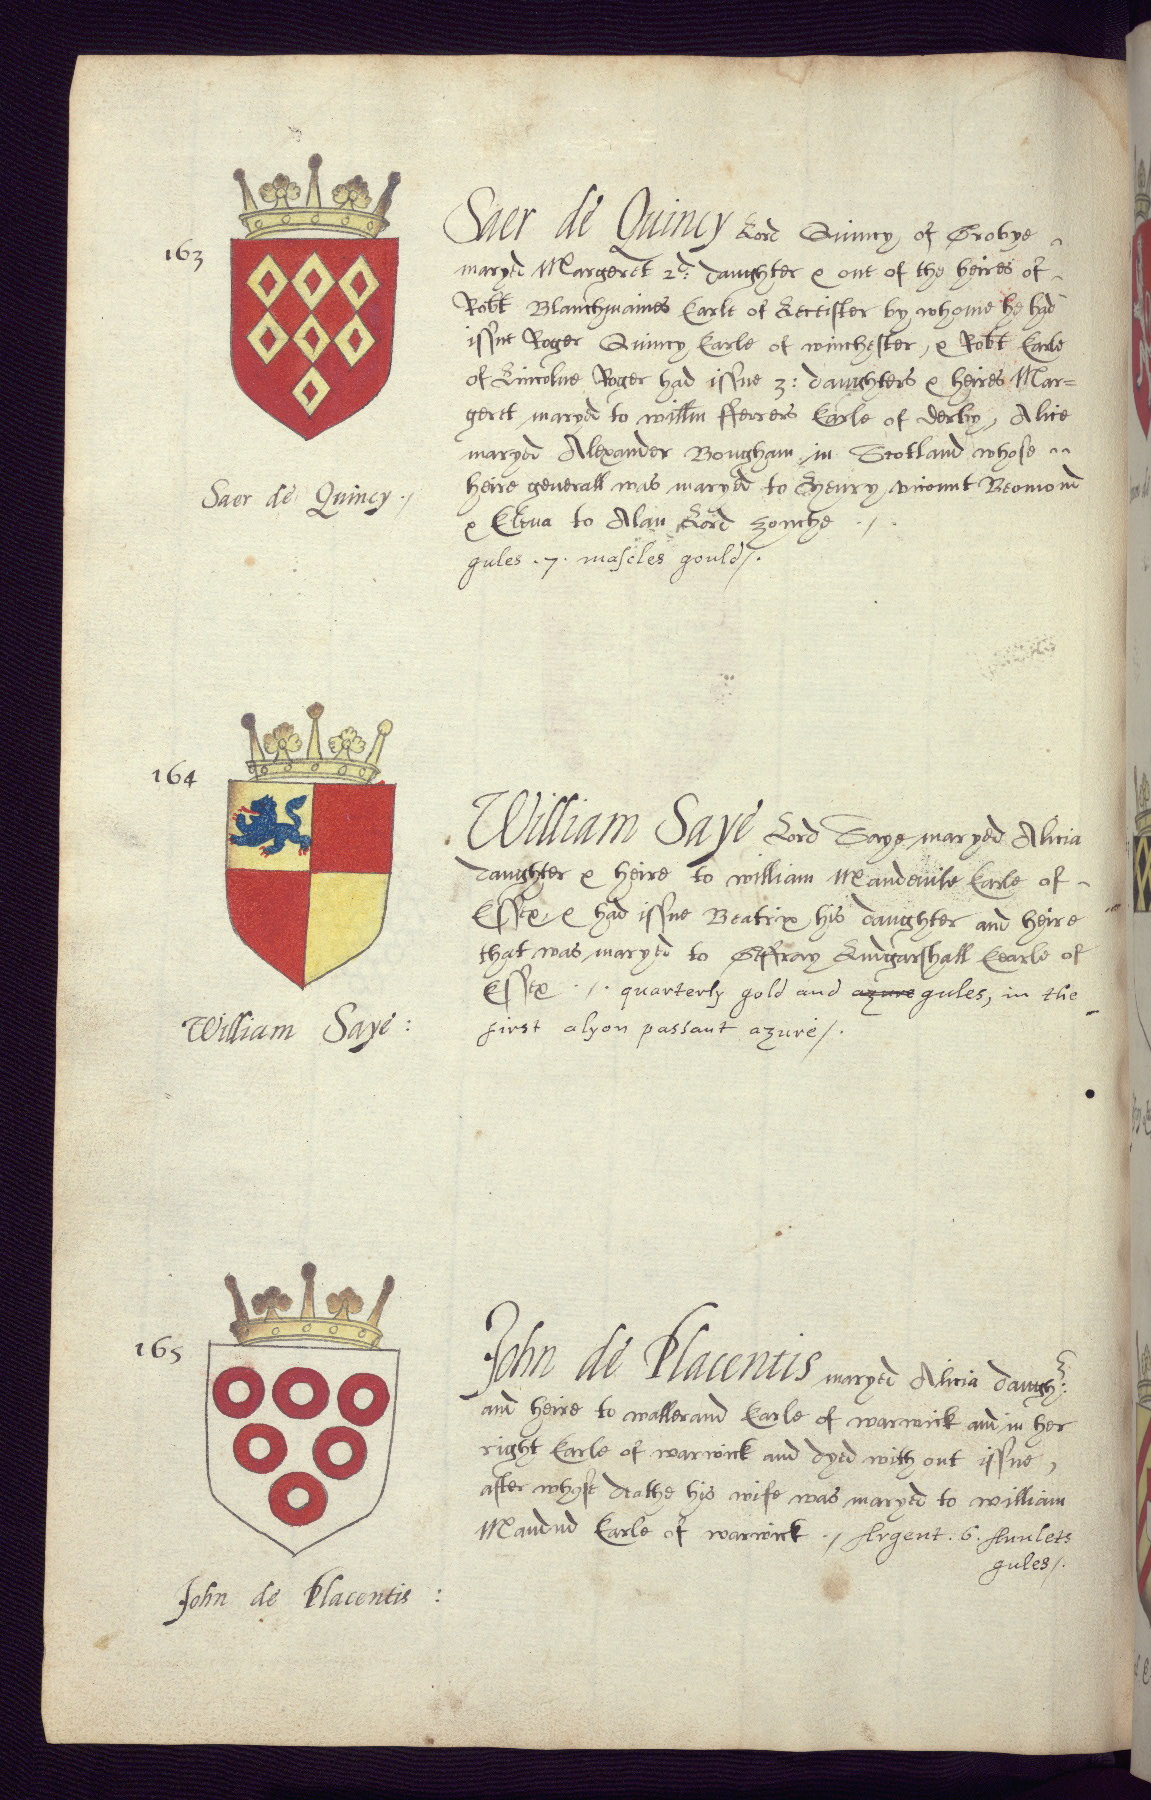 163
Saer dé Quincy Lord Quincy of Grobye
maryed Margeret 2d: daughter & one of the heires of
Robt Blanchmaines Earle of Leceister by whome he had
issue Roger Quincy Earle of winchester, & Robt Earle
of Lincolne Roger had issue 3: daughters & heires Mar=
geret maryed to willm fferrers Earle of derby, Alice
maryed Alexander Bougham in Scotland whose
heire generall was maryed to Henry vicount Beomond
& Elena to Alan Lord zouche ./.
gules .7. mascles gould/.
Saer dé Quincy ./
164
William Sayé Lord Saye maryed Alicia
daughter & heire to william Mandevile Earle of
Essex, & had issue Beatrix his daughter and heire
that was maryed to Geffray Ludgarshall Eearle of
Essex ./. quarterly gold and azure gules, in the
first a lyon passant azuré/.
William Sayé :
165
John dé Placentis maryed Alicia daugh:
and heire to wallerand Earle of warwick and in her
right Earle of warwick and dyed with out issue,
after whose deathe his wife was maryed to william
Earle of warwick ./ Argent .6. Anulets
gules/.
John dé Placentis :